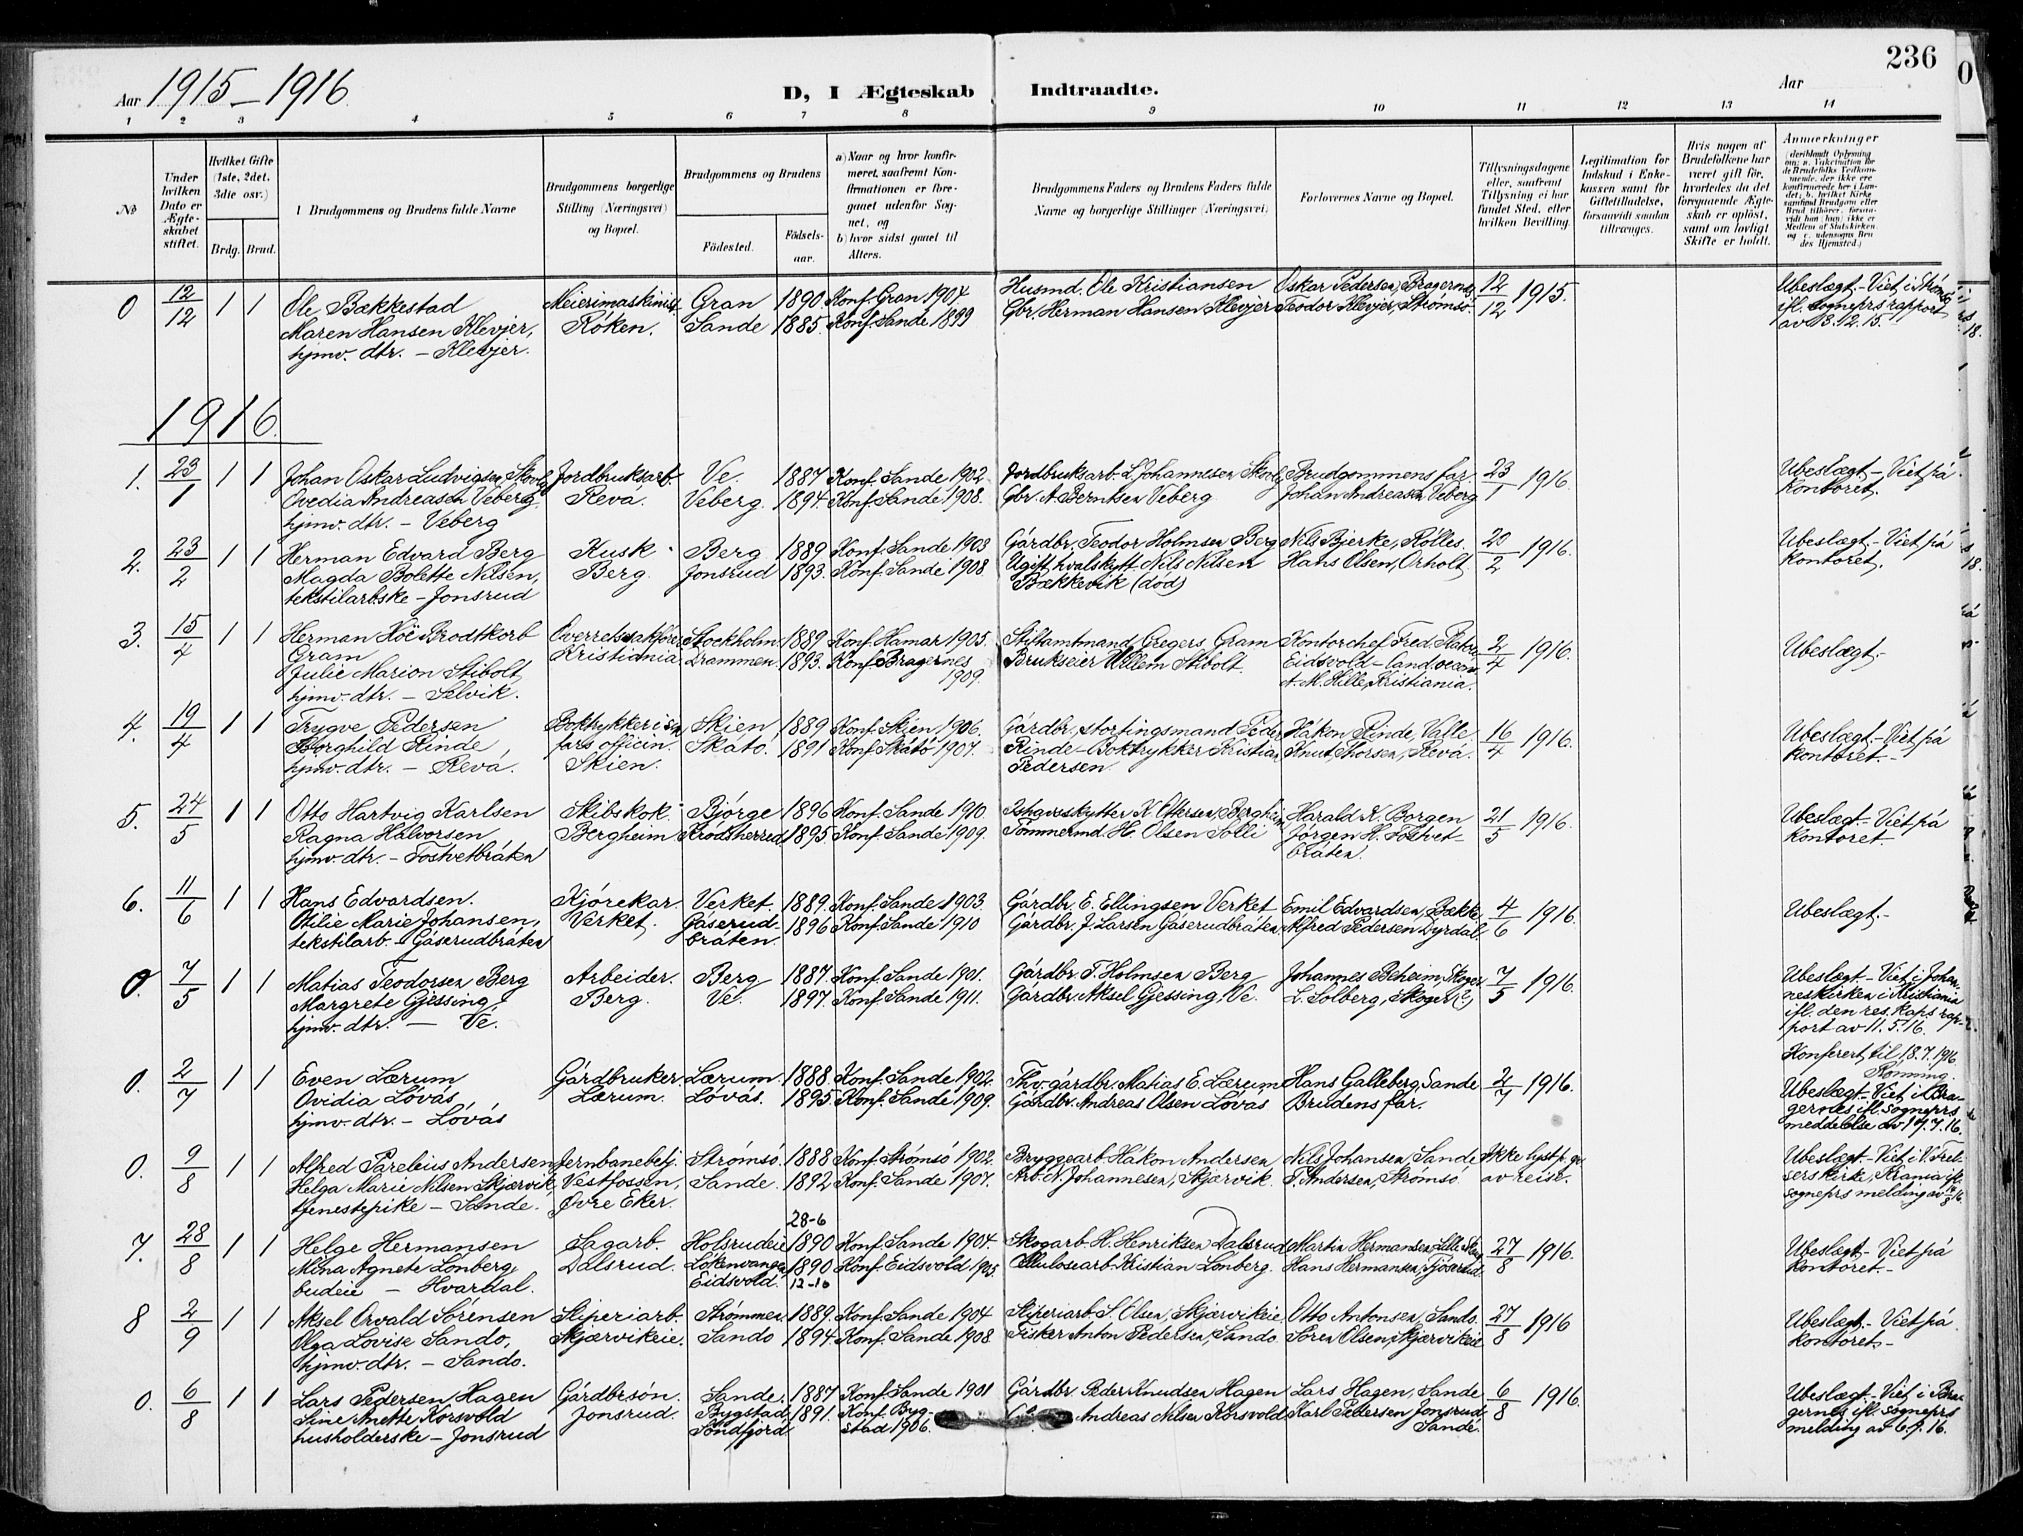 236
Aar 1915–1916
D, I Ægteskab Indtraadte.
Aar
1 2 3 4 5 6 7 8 9 10 11 12 13 14
No
Under hvilken Dato er Ægteskabet stiftet.
Hvilket Gifte (1ste, 2det, 3die osv.)
Brdg. Brud.
Brudgommens og Brudens fulde Navne
Brudgommens borgerlige Stilling (Næringsvei) og Bopæl.
Brudgommens og Brudens
Fødested. Fødselsaar.
a) Naar og hvor konfirmeret, saafremt Konfirmationen er foregaaet udenfor Sognet, og
b) hvor sidst gaaet til Alters.
Brudgommens Faders og Brudens Faders fulde Navne og borgerlige Stillinger (Næringsvei)
Forlovernes Navne og Bopæl.
Tillysningsdagene eller, saafremt Tillysning ei har fundet Sted, efter hvilken Bevilling.
Legitimation for Indskud i Enkekassen samt for Giftetilladelse, forsaavidt saadan tiltrænges.
Hvis nogen af Brudefolkene har været gift før, hvorledes da det foregaaende Ægteskab er opløst, samt om lovligt Skifte er holdt.
Anmerkninger
0 12/12 1 1 Ole Bækkestad Meierimaskinist Gran 1890 Konf. Gran 1904 Husmd. Ole Kristiansen Oskar Pedersen, Bragernes 12/12 1915. Ubeslægt.- Viet i Strømsø
Maren Hansen Klevjer, Røken. Sande 1885 Konf. Sande 1899 Gbr. Herman Hansen Klevjer Teodor Klevjer, Strømsø. ifl. sogneprs rapport
hjmv. dtr. – Klevjer. av 13.12.15.
1916.
1. 23/1 1 1 Johan Oskar Ludvigsen Jordbruksarb. Ve. 1887 Konf. Sande 1902 Jordbruksarb. L. Johannesen Brudgommens far. 23/1 1916. Ubeslægt.- Viet på
Ovedia Andreasen Veberg Revå. Veberg. 1894. Konf. Sande 1908. Gbr. A. Berntsen Veberg Johan Andreasen Veberg kontoret.
hjmv. dtr. – Veberg
2. 23/2 1 1 Herman Edvard Berg Kusk Berg 1889 Konf. Sande 1903 Gårdbr. Teodor Holmsen Berg Nils Bjerke, Rølles. 1916. Ubeslægt.- Viet på
Magda Bolette Nilsen, Berg. Jonsrud 1893. Konf. Sande 1908 Ugift hvalskytt. Nils Nilsen Hans Olsen, Orholt kontoret.
tekstilarbske – Jonsrud Bækkevik (død)
3. 15/4 1 1 Herman Høe Brodtkorb Overretssakfører Stockholm. 1889 Konf. Hamar 1905. Stiftamtmand Gregers Gram Kontorchef Fred. 2/4 1916. Ubeslægt.-
Gram Kristiania Drammen 1893. Konf. Bragernes Brukseier Willem Stibolt. Eidsvold –
Julie Marion Stibolt 1909. A. M. Hille, Kristiania.
hjmv. dtr. – Selvik.
4. 19/4 1 1 Trygve Pedersen Boktrykker i sin Skien 1889 Konf. Skien, 1906. Gårdbr., stortingsmand Peder Håkon Rinde, Valle 16/4 1916. Ubeslægt.- Viet på
Borghild Rinde fars officin. Skåtø. 1891 Konf. Skåtø 1907. Rinde – Boktrykker Kristian Knut Thorsen, Revå kontoret.-
hjmv. dtr. – Revå. Skien. Pedersen
5. 24/5 1 1 Otto Hartvig Karlsen Skibskok Bjørge 1896 Konf. Sande 1910. Ishavsskytter K. Ottersen, Bergheim Harald K. Borgen 21/5 1916. Ubeslægt.- Viet på
Ragna Halvorsen Bergheim Krødsherred 1895 Konf. Sande 1909. Tømmermd. H. Olsen Solli Jørgen H. Tostvet- kontoret.-
hjmv. dtr. – Tostvetbråten bråten.
6. 11/6 1 1 Hans Edvardsen. Kjørekar Verket. 1889. Konf. Sande 1903 Gårdbr. E. Ellingsen Verket Emil Edvardsen, Bække 4/6 1916. Ubeslægt.-
Otilie Marie Johansen, Verket. Gåserud- 1896 Konf. Sande 1910 Gårdbr. J. Larsen Gåserudbråten Alfred Pedersen Dyrdal.
tekstilarb. – Gåserudbråten bråten
0. 7/5 1 1 Matias Teodorsen Berg Arbeider. Berg 1887. Konf. Sande 1901. Gårdbr. T. Holmsen Berg Johannes Beheim, Skoger 7/5 1916. Ubeslægt.- Viet i Johan-
Margrete Gjessing Berg. Ve. 1897. Konf. Sande 1911. Gårdbr. Aksel Gjessing, Ve. L. Solberg, Skoger neskirken i Kristiania
hjmv. dtr. – Ve. ifl. den res. kaps rap-
port av 11.5.16.
Konferert til 18.7.1916
Rønning.
0. 2/7 1 1 Even Lærum Gårdbruker. Lærum. 1888. Konf. Sande 1902. Thv. gårdbr. Matias E. Lærum Hans Galleberg, Sande 2/7 1916. Ubeslægt.- Viet i Bra-
Ovidia Løvås Lærum. Løvås. 1895 Konf. Sande 1909. Gårdbr. Andreas Olsen Løvås Brudens far. gernes ifl. sogneprs
hjmv. dtr. – Løvås meddelelse av 17.7.16.
0. 9/8 1 1 Alfred Parelius Andersen Jernbanebetj. Strømsø. 1888 Konf. Strømsø 1902. Bryggearb. Håkon Andersen Nils Johansen, Sande Ikke lyst p. gr. Ubeslægt.- Viet i V. Frel-
Helga Marie Nilsen Skjærvik, Vestfossen, Sande. 1892 Konf. Sande 1907. Arb. N. Johannesen, Skjærvik. T. Andersen, Strømsø av reise. serskirke, Krania ifl.
tjenestepike – Sande. Øvre Eker. sogneprs melding av
28-6
7. 28/8 1 1 Helge Hermansen Sagarb. Holsrudeie 1890 Konf. Sande 1904. Skogarb. H. Henriksen Dalsrud Martin Hermansen, 27/8 1916. Ubeslægt.- Viet på
Mina Agnete Lønberg Dalsrud. Løkenvangen 1890 Konf. Eidsvold 1905. Cellulosearb. Kristian Lønberg. Hans Hermansen, kontoret.-
budeie – Hvardal. Eidsvold. 12-10
8 2/9 1 1 Aksel Orvald Sørensen Sliperiarb. Strømmen 1889. Konf. Sande 1904 Sliperiarb. S. Olsen, Skjærvikeie Otto Antonsen, Sando. 27/8 1916 Ubeslægt.- Viet på
Olga Lovise Sando, Skjærvikeie. Sando 1894 Konf. Sande 1908 Fisker Anton Pedelsen, Sando. Søren Olsen, Skjærvikeie kontoret.-
hjmv. dtr. – Sando.
0. 6/8 1 1 Lars Pedersen Hagen Gårdbrsøn. Sande. 1887 Konf. Sande 1901 Gårdbr. Peder Knudsen Hagen Lars Hagen, Sande 6/8 1916. Ubeslægt.- Viet i Bra-
Sine Anette Korsvold Jonsrud. Bygstad, 1891. Konf. Byg- Andreas Nilsen Korsvold Karl Pedersen Jonsrud, gernes ifl. sogneprs
husholderske – Jonsrud Søndfjord stad 1906. Sande. melding av 6.9.16.